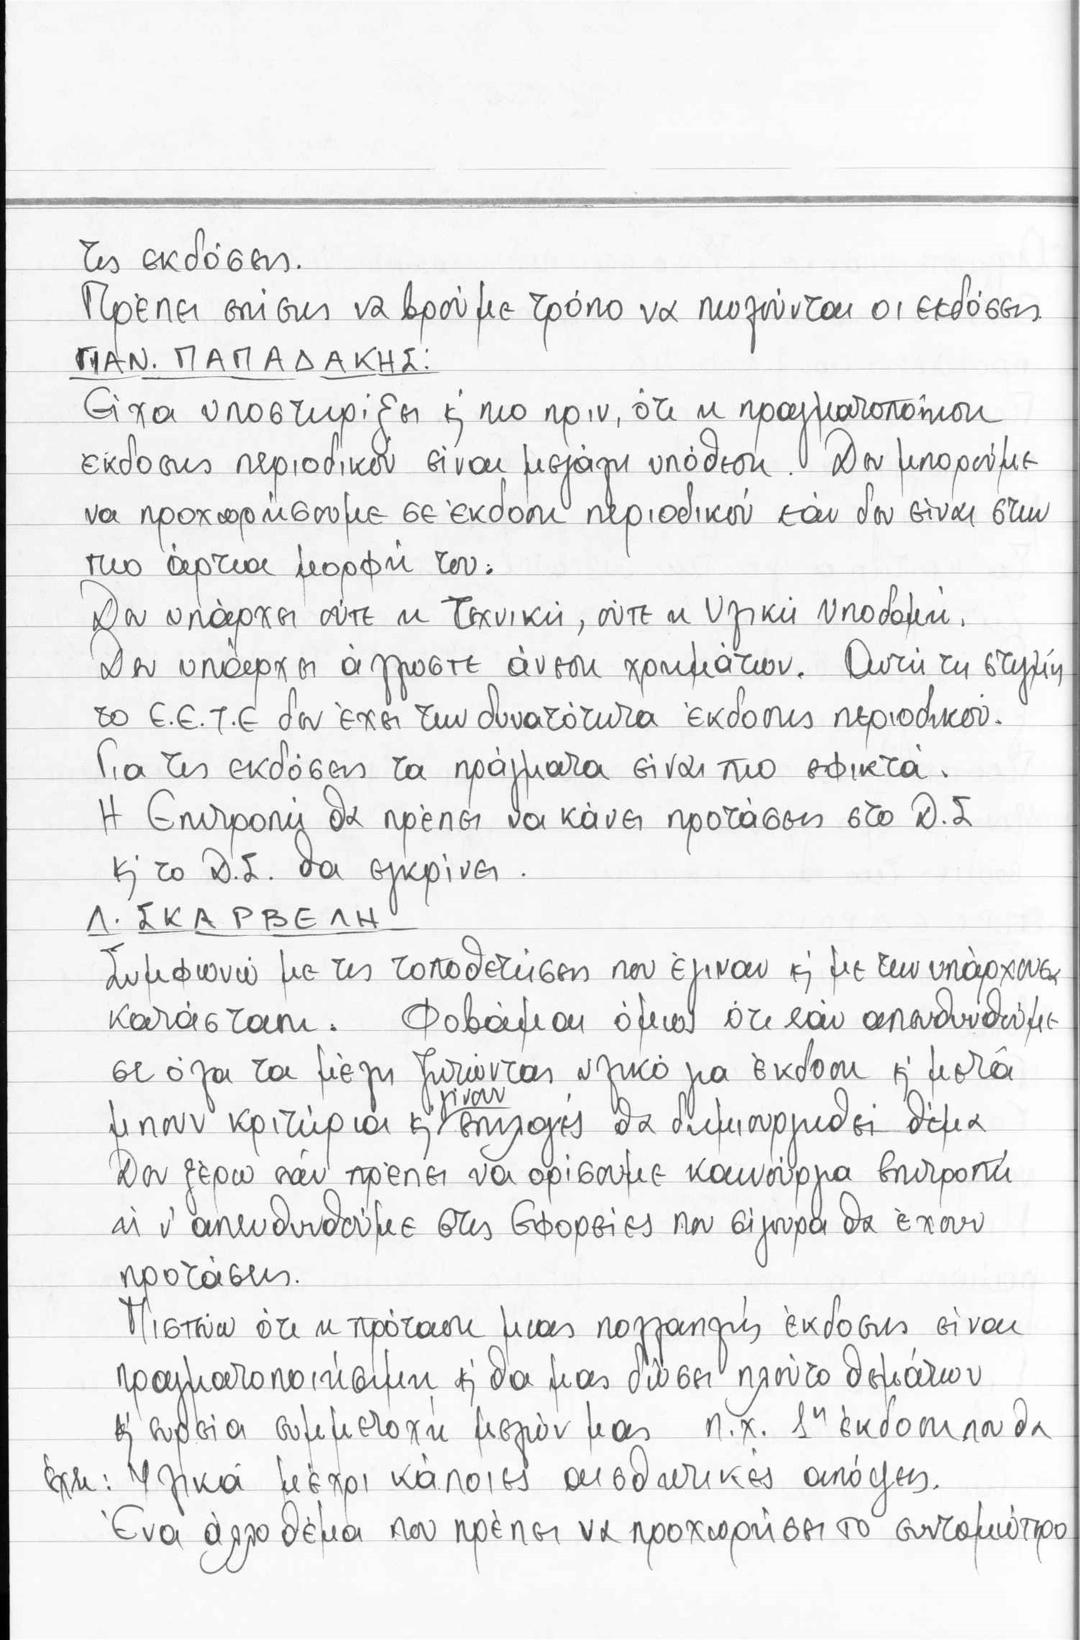 τις εκδόσεις.
Πρέπει επίσης να βρούμε τρόπο να πωλούνται οι εκδόσεις
ΠΑΝ. ΠΑΠΑΔΑΚΗΣ:
Είχα υποστηρίξει κ' πιο πριν, ότι η πραγματοποίηση
έκδοσης περιοδικού είναι μεγάλη υπόθεση. Δεν μπορούμε
να προχωρήσουμε σε έκδοση περιοδικού εάν δεν είναι στην
πιο άρτια μορφή του.
Δεν υπάρχει ούτε η Τεχνική, ούτε η Υλική Υποδομή.
Δεν υπάρχει άλλωστε άνεση χρημάτων. Αυτή τη στιγμή
το Ε.Ε.Τ.Ε δεν έχει την δυνατότητα έκδοσης περιοδικού.
Για τις εκδόσεις τα πράγματα είναι πιο εφικτά.
Η Επιτροπή θα πρέπει να κάνει προτάσεις στο Δ.Σ
κ' το Δ.Σ. θα εγκρίνει.
Λ. ΣΚΑΡΒΕΛΗ
Συμφωνώ με τις τοποθετήσεις που έγιναν κ' με την υπάρχουσα
κατάσταση. Φοβάμαι όμως ότι εάν απευθυνθούμε
σε όλα τα μέλη ζητώντας υλικό για έκδοση κ' μετά
μπουν κριτήρια κ' γίνουν επιλογές θα δημιουργηθεί θέμα
Δεν ξέρω εάν πρέπει να ορίσουμε καινούργια επιτροπή
ή ν' απευθυνθούμε στις Εφορείες που σίγουρα θα έχουν
προτάσεις.
Πιστεύω ότι η πρόταση μιας πολλαπλής έκδοσης είναι
πραγματοποιήσιμη κ' θα μας δώσει πλούτο θεμάτων
κ' ευρεία συμμετοχή μελών μας π.χ. 1η έκδοση που θα
έχει: Υλικά μέχρι κάποιες αισθητικές απόψεις.
Ένα άλλο θέμα που πρέπει να προχωρήσει το συντομώτερο